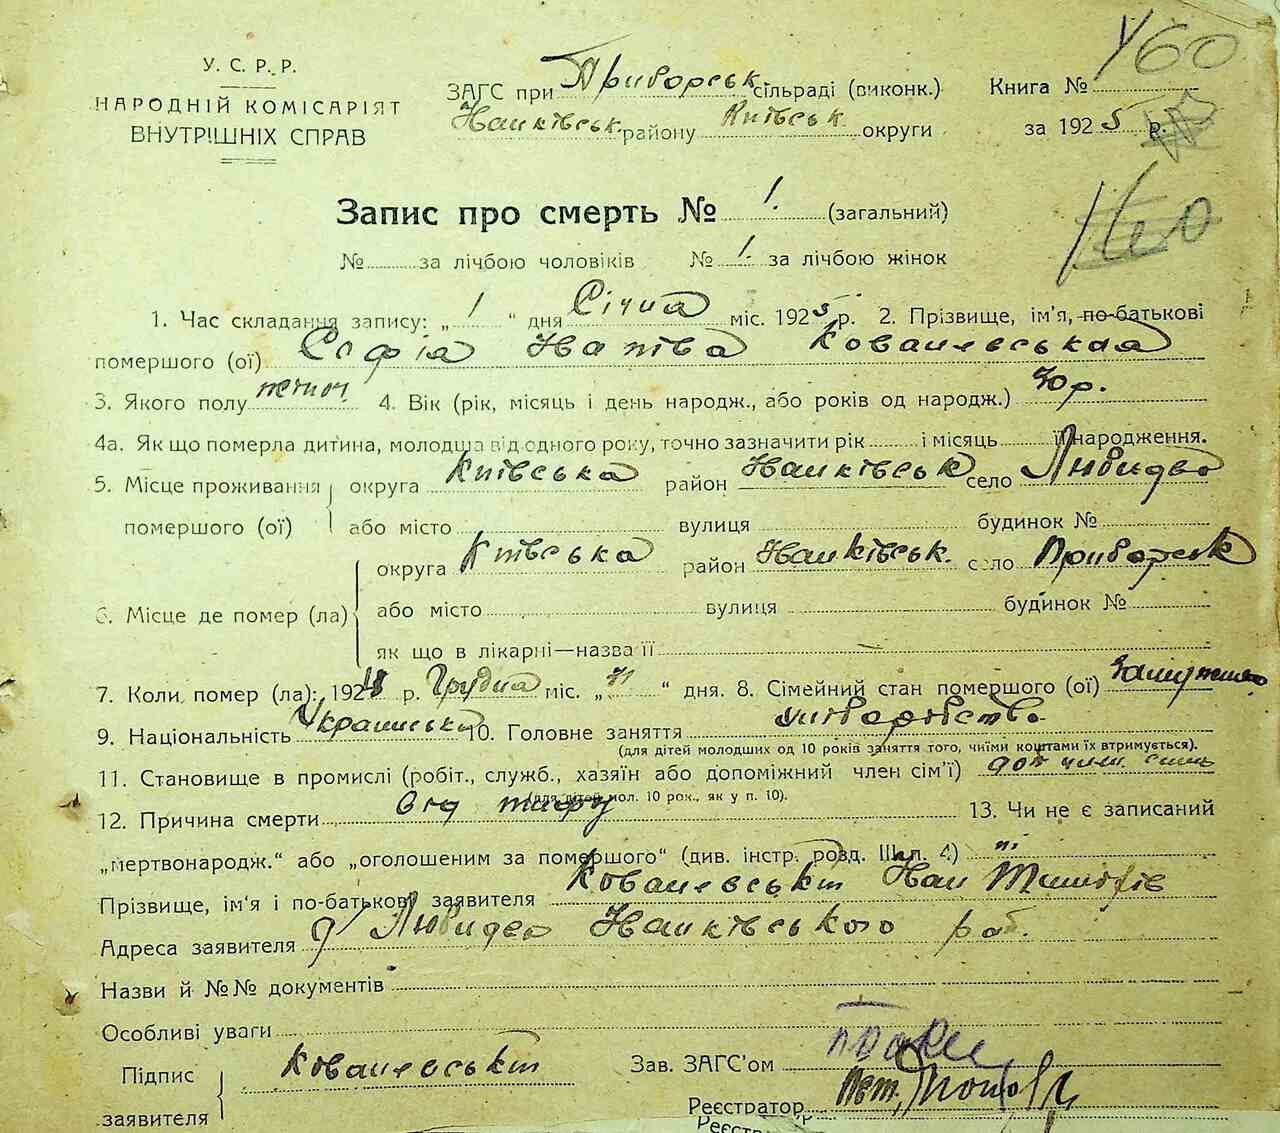 У. С. Р. Р.
НАРОДНІЙ КОМІСАРІЯТ
ВНУТРІШНІХ СПРАВ
ЗАГС при Приборськ сільраді (виконк.)
Іванківськ. району Київськ. округи
Книга №
за 1925 р.
460
160
Запис про смерть № 1. (загальний)
№ за лічбою чоловіків № 1. за лічбою жінок
1. Час складання запису: „ 1 “ дня Січня міс. 1925 р. 2. Прізвище, ім'я, по-батькові
помершого (ої) Софія Ковалевськая
3. Якого полу жіноч. 4. Вік (рік, місяць і день народж., або років од народж.) 30 р.
4а. Як що померла дитина, молодша від одного року, точно зазначити рік і місяць її народження.
5. Місце проживання помершого (ої) округа Київська район Іванківськ село
або місто вулиця будинок №
6. Місце де помер (ла) округа Київська район Іванківськ. село Приборськ
або місто вулиця будинок №
як що в лікарні—назва її
7. Коли помер (ла): 192 р. Грудня міс. „ “ дня. 8. Сімейний стан помершого (ої) Замужняо
9. Національність Українська 10. Головне заняття хліборобство
(для дітей молодших од 10 років заняття того, чиїми коштами їх втримується).
11. Становище в промислі (робіт., служб., хазяїн або допоміжний член сім'ї) доп член
(для дітей мол. 10 рок., як у п. 10).
12. Причина смерти від тифу 13. Чи не є записаний
„мертвонародж.“ або „оголошеним за помершого“ (див. інстр. розд. III л. 4) ні
Прізвище, ім'я і по-батькові заявителя Ковалевський Іван
Адреса заявителя Іванківського
Назви й №№ документів
Особливі уваги
Підпис заявителя Ковалевський
Зав. ЗАГС'ом
Реєстратор